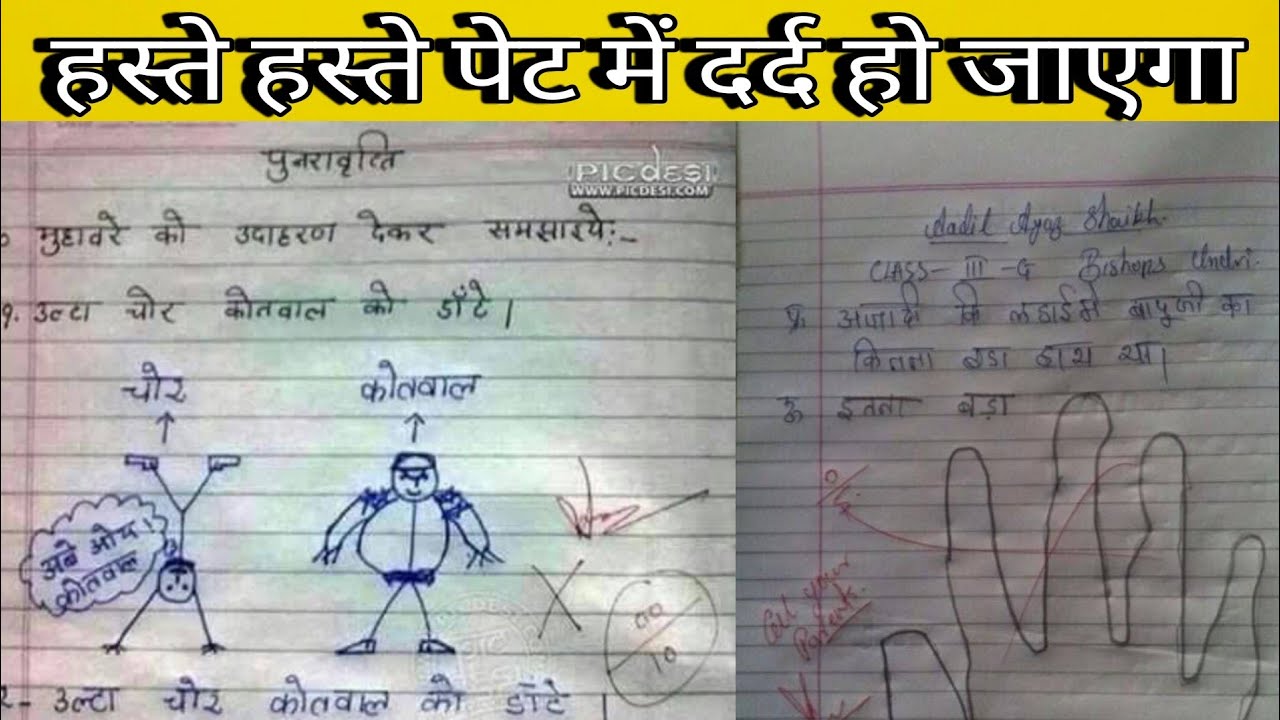 हस्ते हस्ते पेट में दर्द हो जाएगा
पुनरावृत्ति
PICDESI
WWW.PICDESI.COM
मुहावरे को उदाहरण देकर समझाइये:-
१. उल्टा चोर कोतवाल को डाँटे।
चोर कोतवाल
अबे ओय!
कोतवाल
00
10
२- उल्टा चोर कोतवाल को डाँटे।
Aadil Ayaz Shaikh.
CLASS-III-G Bishops Undri.
प्र. आजादी कि लडाईमे बापूजी का
कितना बडा हाथ था।
उ. इतना बड़ा
0
Call your
Parents.